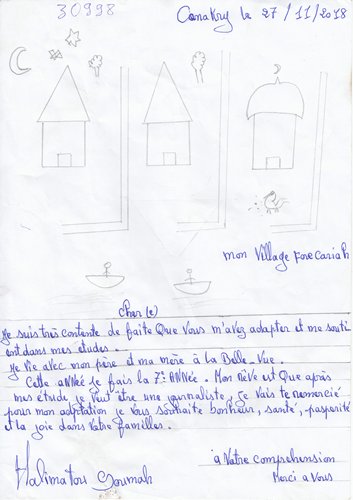 30998
Conakry le 27/11/2018
mon Village Forecariah
Cher(e)
Je suis très contente de faite Que vous m'avez adapter et me souti
ent dans mes études.
Je vie avec mon père et ma mère à la Belle-Vue.
Cette ANNée Je fais la 7e ANNée. Mon Rêve est Que après
mes étude je veut être une journaliste. Je vais te remercié
pour mon adaptation je vous souhaite bonheur, santé, pasperité
et la joie dans Votre familles.
Halimatou Soumah
à Votre comprehension
Merci à Vous